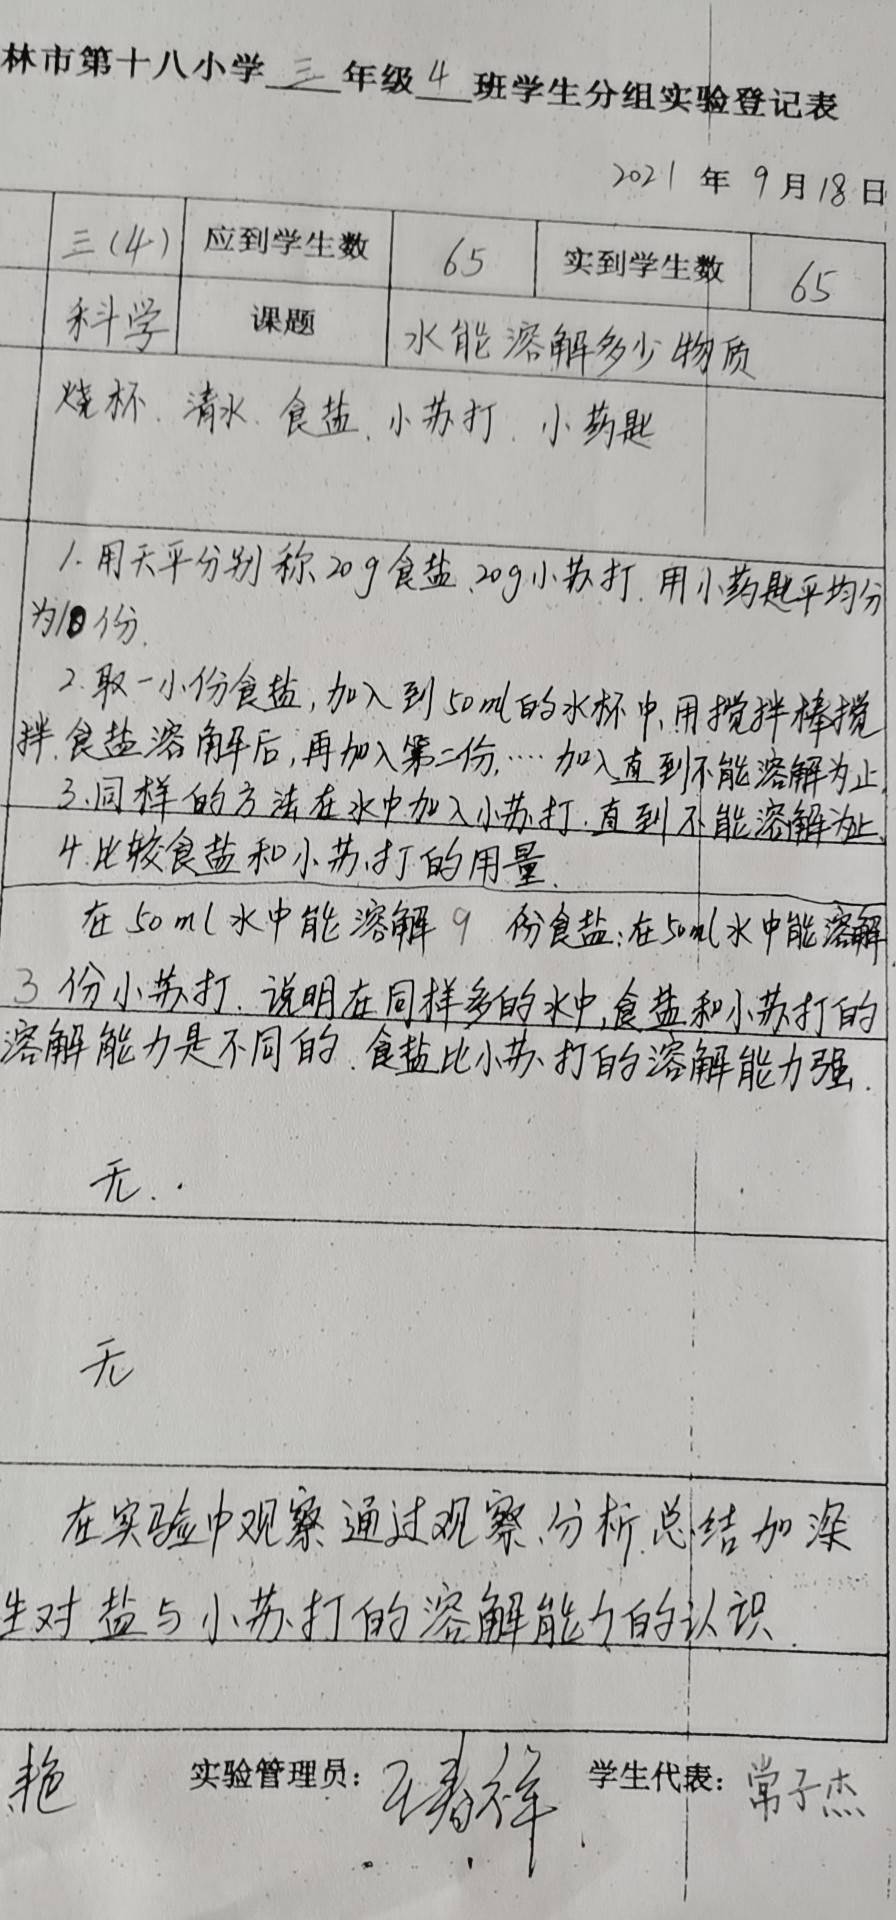 林市第十八小学三年级4班学生分组实验登记表
2021年9月18日
三(4) 应到学生数 65 实到学生数 65
科学 课题 水能溶解多少物质
烧杯、清水、食盐、小苏打、小药匙
1.用天平分别称20g食盐、20g小苏打.用小药匙平均分
为10份.
2.取一小份食盐,加入到50ml的水杯中,用搅拌棒搅
拌.食盐溶解后,再加入第二份,……加入直到不能溶解为止.
3.同样的方法在水中加入小苏打.直到不能溶解为止.
4.比较食盐和小苏打的用量.
在50ml水中能溶解9份食盐;在50ml水中能溶解
3份小苏打.说明在同样多的水中,食盐和小苏打的
溶解能力是不同的.食盐比小苏打的溶解能力强.
无.
无
在实验中观察通过观察、分析、总结加深
生对盐与小苏打的溶解能力的认识.
艳 实验管理员: 王春祥 学生代表: 常子杰